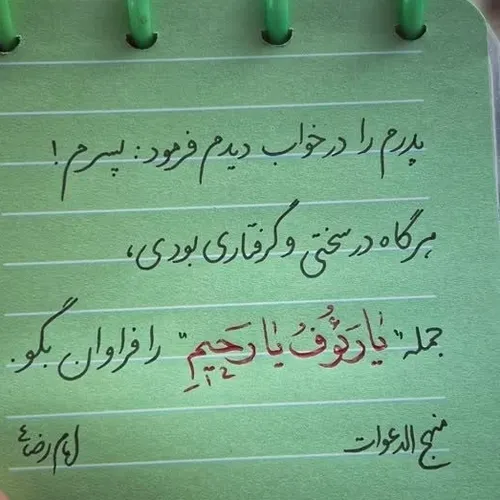 پدرم را در خواب دیدم فرمود: پسرم!
هرگاه در سختی و گرفتاری بودی،
جمله "یٰا رَئوُفُ یٰا رَحیٖمِ" را فراوان بگو.
منهج الدعوات امام رضا ع